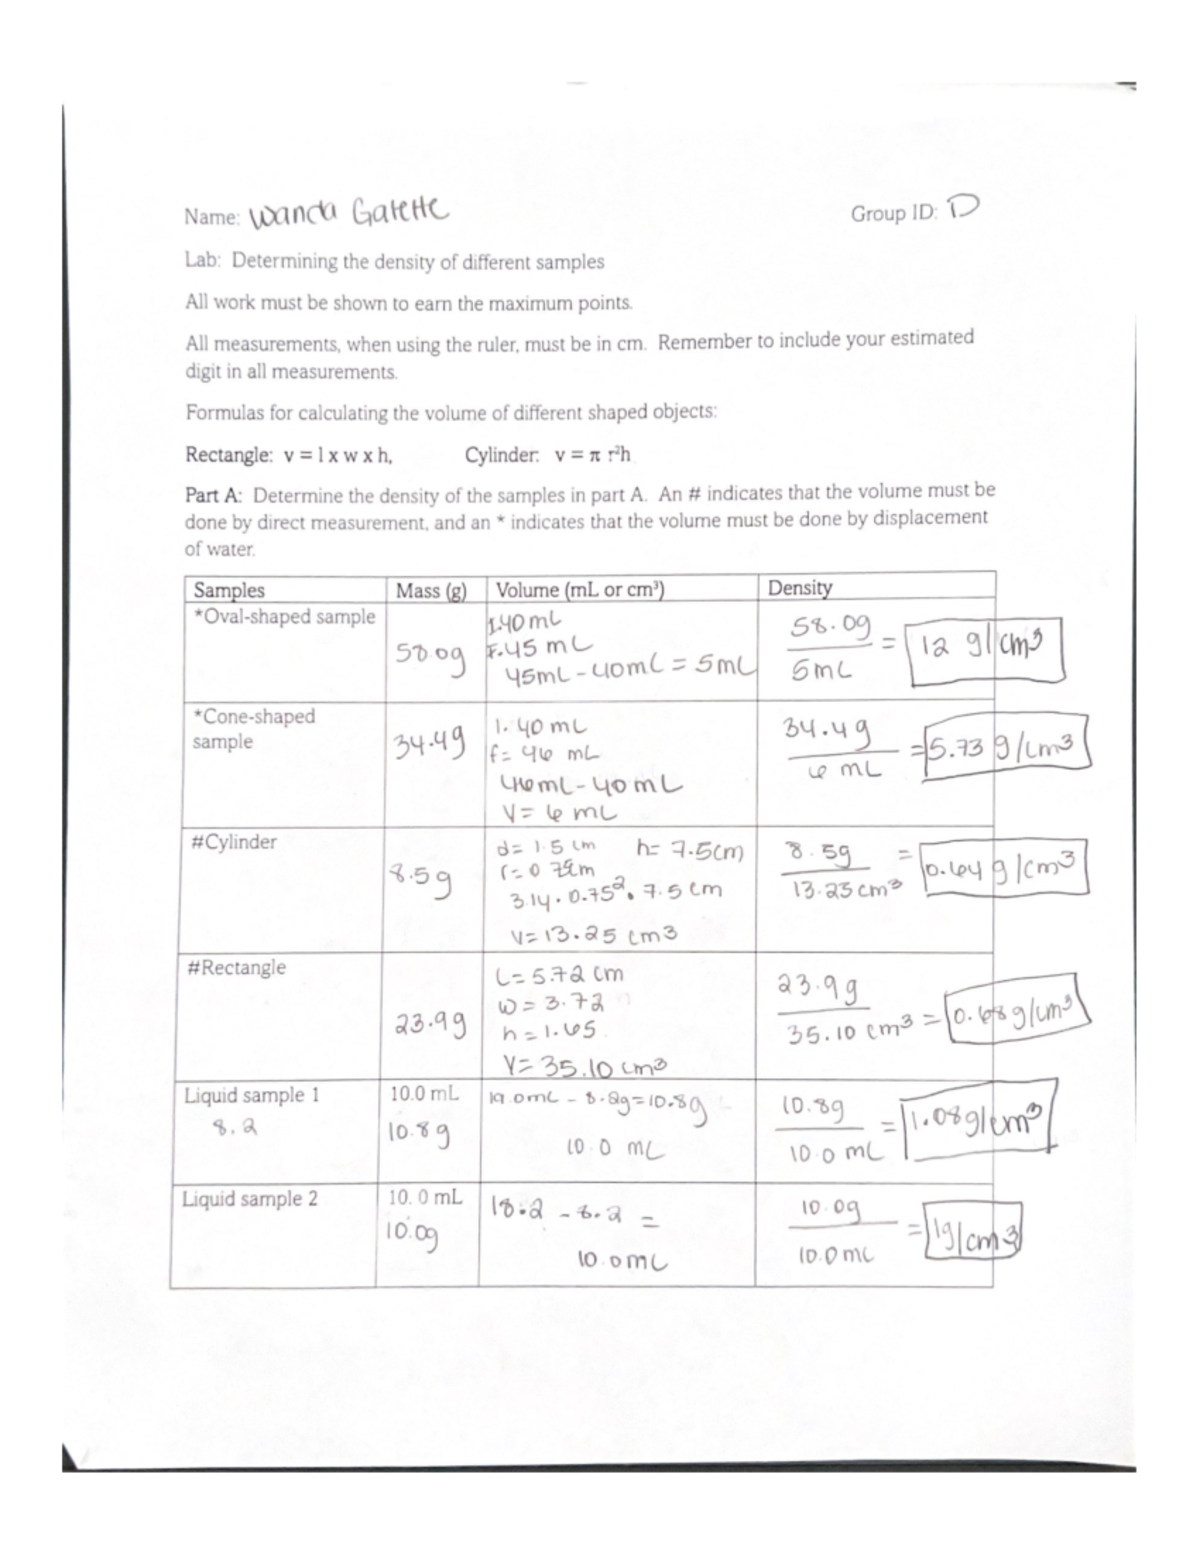 Name: Wanda Gatette
Group ID: D
Lab: Determining the density of different samples
All work must be shown to earn the maximum points.
All measurements, when using the ruler, must be in cm. Remember to include your estimated
digit in all measurements.
Formulas for calculating the volume of different shaped objects:
Rectangle: v = l x w x h, Cylinder: v = π r²h
Part A: Determine the density of the samples in part A. An # indicates that the volume must be
done by direct measurement, and an * indicates that the volume must be done by displacement
of water.
Samples Mass (g) Volume (mL or cm³) Density
*Oval-shaped sample
58.0g
I.40 mL
F.45 mL
45mL - 40mL = 5mL
58.0g
5mL
= 12 g/cm³
*Cone-shaped
sample
34.4g
I. 40 mL
f= 46 mL
46mL - 40mL
V= 6 mL
34.4g
6 mL
= 5.73 g/cm³
#Cylinder
8.5g
d= 1.5 cm h= 7.5cm
r=0.75cm
3.14 . 0.75² . 7.5 cm
V=13.25 cm3
8.5g
13.25 cm³
= 0.64 g/cm³
#Rectangle
23.9g
L= 5.72 cm
W= 3.72
h=1.65
V= 35.10 cm³
23.9g
35.10 cm³
= 0.68g/cm³
Liquid sample 1
8.2
10.0 mL
10.8g
19.0mL - 8.2g=10.8g
10.0 mL
10.8g
10.0 mL
= 1.08g/cm³
Liquid sample 2
10. 0 mL
10.0g
18.2 - 8.2 =
10.0mL
10.0g
10.0mL
= 1g/cm3